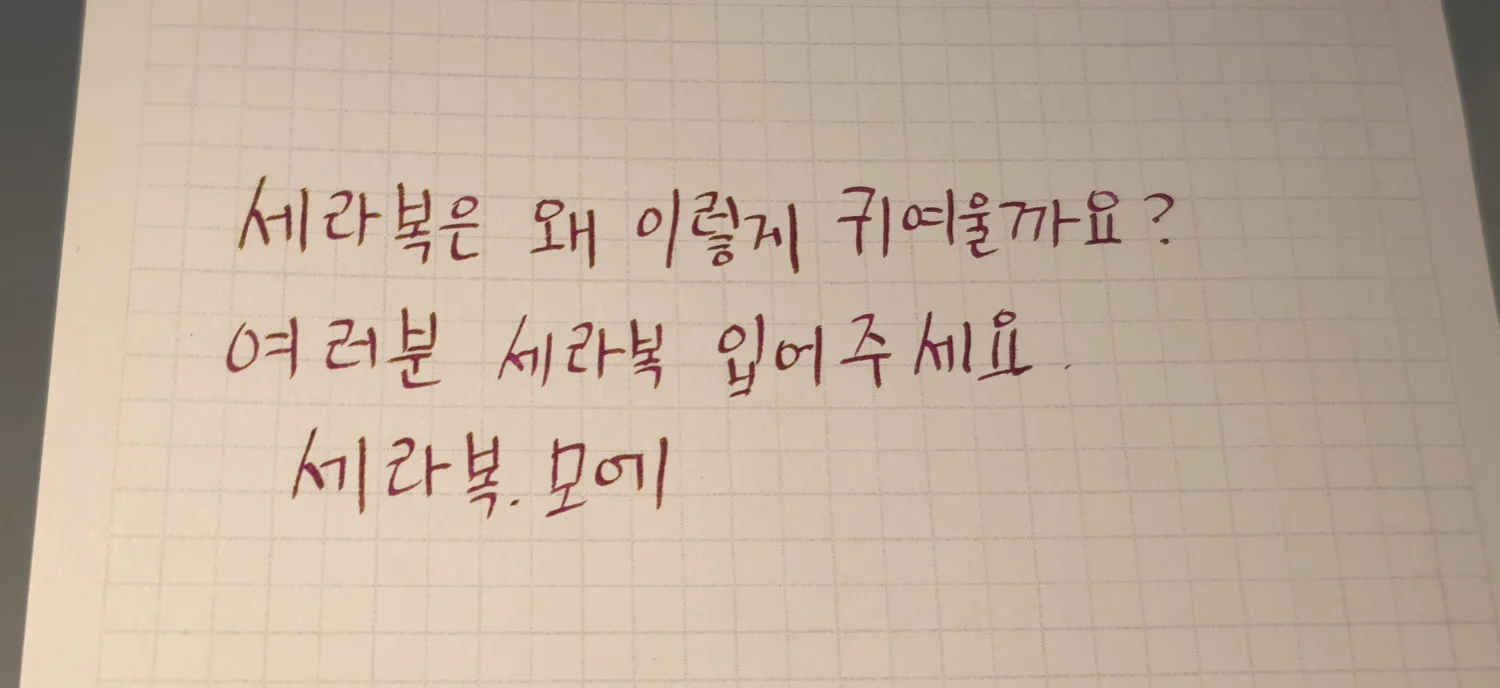 세라복은 왜 이렇게 귀여울까요?
여러분 세라복 입어주세요.
세라복.모에